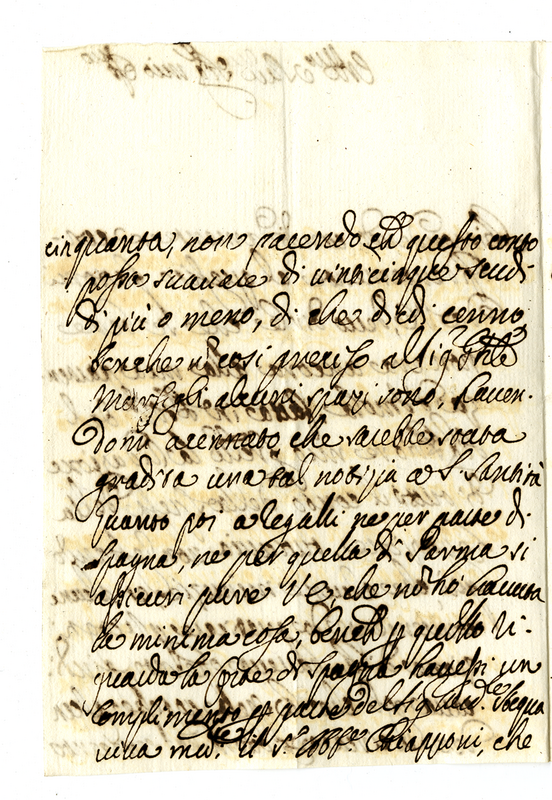 cinquanta, non facendo ch'è questo conto
possa svariare di vinticinque scudi
di più o meno, di che diedi cenno
benche nõ così preciso al Sig.r
Marsigli alcuni spazi sono, havendo
donu acennato che sarebbe stata
gradita una tal notizia a S. Santità
Quanto poi a regalli ne per parte di
Spagna, ne per quella di Parma si
assicuri pure VE, che nõ hò havuta
la minima cosa, bench p quello ri-
guarda la Corte di Spagna havessi un
complimento p parte del Sig.
viva il Sr. Chiapponi, che